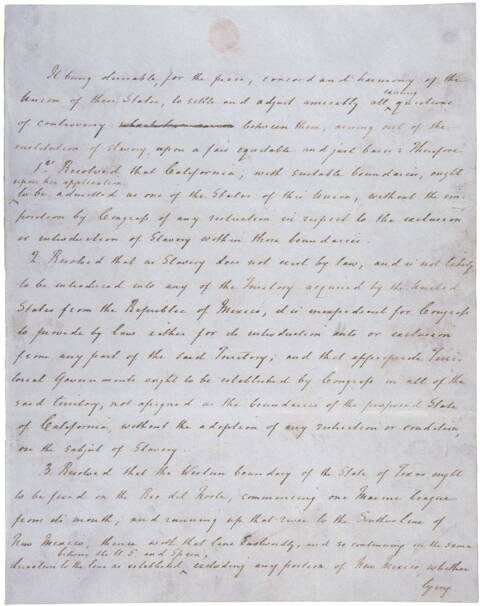 It being desirable, for the peace, concord and harmony of the
Union of these States, to settle and adjust amicably all existing questions
of controversy between them, arising out of the
institution of slavery, upon a fair equitable and just basis: Therefore
1st. Resolved that California, with suitable boundaries, ought
upon her application
to be admitted as one of the States of this Union, without the im-
position by Congress of any restriction in respect to the exclusion
or introduction of Slavery within those boundaries.
2. Resolved that as Slavery does not exist by law, and is not likely
to be introduced into any of the Territory acquired by the United
States from the Republic of Mexico, it is inexpedient for Congress
to provide by law either for its introduction into or exclusion
from any part of the said Territory; and that appropriate Terri-
torial Governments ought to be established by Congress in all of the
said territory, not assigned as the boundaries of the proposed State
of California, without the adoption of any restriction or condition
on the subject of Slavery.
3. Resolved that the Western boundary of the State of Texas ought
to be fixed on the Rio del Norte, commencing one Marine league
from its mouth, and running up that river to the Southern line of
New Mexico, thence with that line Eastwardly, and so continuing in the same
between the U.S. and Spain,
direction to the line as established, excluding any portion of New Mexico, whether
lying